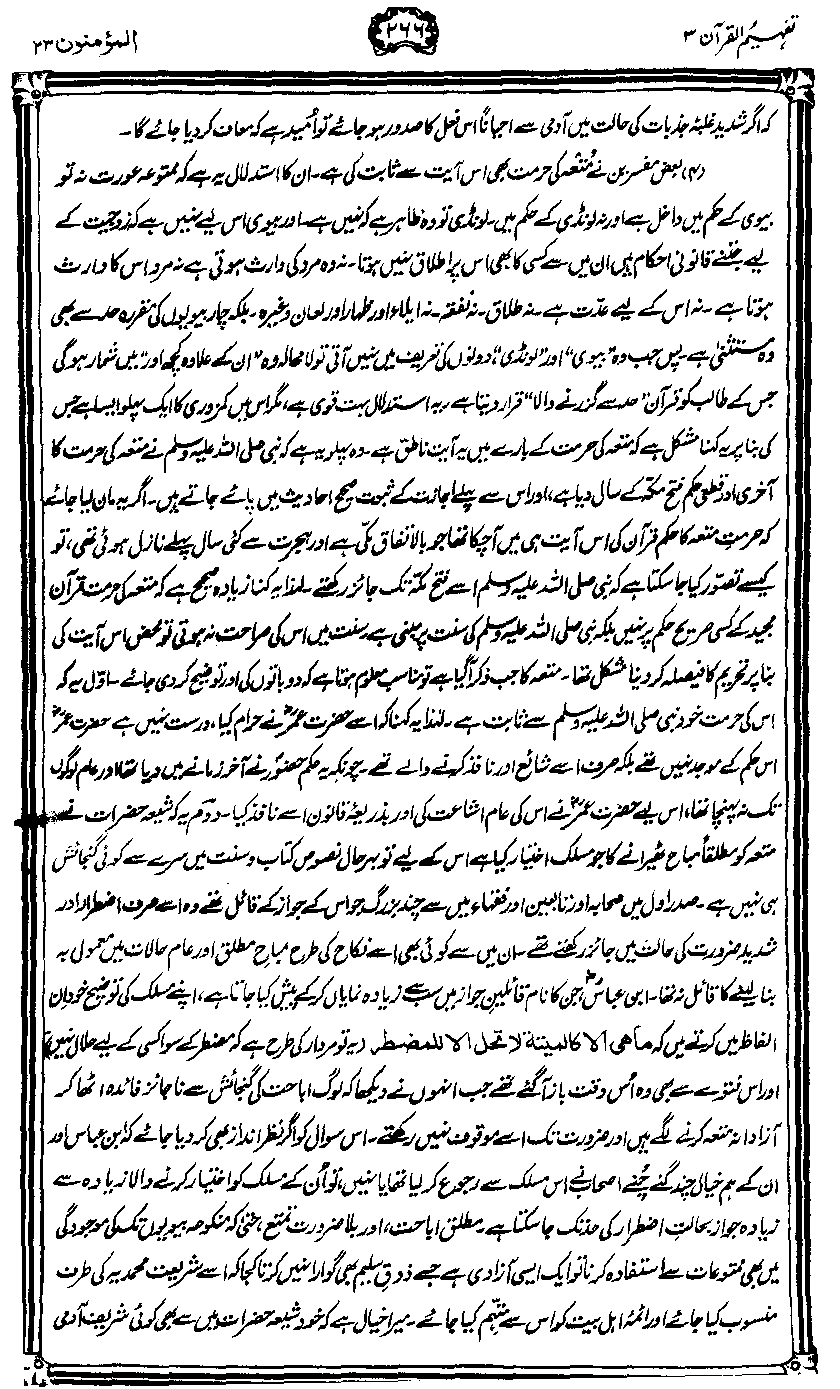 تفہیم القرآن ۳
۲۶۶
المؤمنون ۲۳
کہ اگر شدید غلبۂ جذبات کی حالت میں آدمی سے احیاناً اس فعل کا صدور ہو جائے تو اُمید ہے کہ معاف کر دیا جائے گا۔
(۴) بعض مفسرین نے مُتعہ کی حرمت بھی اس آیت سے ثابت کی ہے۔ ان کا استدلال یہ ہے کہ ممتوعہ عورت نہ تو
بیوی کے حکم میں داخل ہے اور نہ لونڈی کے حکم میں۔ لونڈی تو وہ ظاہر ہے کہ نہیں ہے۔ اور بیوی اس لیے نہیں ہے کہ زوجیت کے
لیے جتنے قانونی احکام ہیں ان میں سے کسی کا بھی اس پر اطلاق نہیں ہوتا۔ نہ وہ مرد کی وارث ہوتی ہے نہ مرد اس کا وارث
ہوتا ہے۔ نہ اس کے لیے عدّت ہے۔ نہ طلاق۔ نہ نفقہ۔ نہ ایلاء اور ظہار اور لعان وغیرہ۔ بلکہ چار بیویوں کی مقررہ حد سے بھی
وہ مستثنیٰ ہے۔ پس جب وہ ”بیوی“ اور ”لونڈی“ دونوں کی تعریف میں نہیں آتی تو لامحالہ وہ ”ان کے علاوہ کچھ اور“ میں شمار ہوگی
جس کے طالب کو قرآن ”حد سے گزرنے والا“ قرار دیتا ہے۔ یہ استدلال بہت قوی ہے، مگر اس میں کمزوری کا ایک پہلو ایسا ہے جس
کی بنا پر یہ کہنا مشکل ہے کہ متعہ کی حرمت کے بارے میں یہ آیت ناطق ہے۔ وہ پہلو یہ ہے کہ نبی صلی اللہ علیہ وسلم نے متعہ کی حرمت کا
آخری اور قطعی حکم فتح مکّہ کے سال دیا ہے، اور اس سے پہلے اجازت کے ثبوت صحیح احادیث میں پائے جاتے ہیں۔ اگر یہ مان لیا جائے
کہ حرمتِ متعہ کا حکم قرآن کی اس آیت ہی میں آچکا تھا جو بالاتفاق مکّی ہے اور ہجرت سے کئی سال پہلے نازل ہوئی تھی، تو
کیسے تصوّر کیا جا سکتا ہے کہ نبی صلی اللہ علیہ وسلم اسے فتح مکّہ تک جائز رکھتے۔ لہٰذا یہ کہنا زیادہ صحیح ہے کہ متعہ کی حرمت قرآن
مجید کے کسی صریح حکم پر نہیں بلکہ نبی صلی اللہ علیہ وسلم کی سنت پر مبنی ہے۔ سنت میں اس کی صراحت نہ ہوتی تو محض اس آیت کی
بنا پر تحریم کا فیصلہ کر دینا مشکل تھا۔ متعہ کا جب ذکر آگیا ہے تو مناسب معلوم ہوتا ہے کہ دو باتوں کی اور توضیح کر دی جائے۔ اوّل یہ کہ
اس کی حرمت خود نبی صلی اللہ علیہ وسلم سے ثابت ہے۔ لہٰذا یہ کہنا کہ اسے حضرت عمرؓ نے حرام کیا، درست نہیں ہے حضرت عمرؓ
اس حکم کے موجد نہیں تھے بلکہ صرف اسے شائع اور نافذ کرنے والے تھے۔ چونکہ یہ حکم حضورؐ نے آخر زمانے میں دیا تھا اور عام لوگوں
تک نہ پہنچا تھا، اس لیے حضرت عمرؓ نے اس کی عام اشاعت کی اور بذریعۂ قانون اسے نافذ کیا۔ دوم یہ کہ شیعہ حضرات نے
متعہ کو مطلقاً مباح ٹھیرانے کا جو مسلک اختیار کیا ہے اس کے لیے تو بہرحال نصوص کتاب و سنت میں سرے سے کوئی گنجائش
ہی نہیں ہے۔ صدر اول میں صحابہ اور تابعین اور فقہاء میں سے چند بزرگ جو اس کے جواز کے قائل تھے وہ اسے صرف اضطرار اور
شدید ضرورت کی حالت میں جائز رکھتے تھے۔ ان میں سے کوئی بھی اسے نکاح کی طرح مباح مطلق اور عام حالات میں معمول بہ
بنا لینے کا قائل نہ تھا۔ ابن عباسؓ، جن کا نام قائلین جواز میں سب سے زیادہ نمایاں کر کے پیش کیا جاتا ہے، اپنے مسلک کی توضیح خود اِن
الفاظ میں کرتے ہیں کہ ماھی الا کالمیتة لا تحل الا للمضطر (یہ تو مردار کی طرح ہے کہ مضطر کے سوا کسی کے لیے حلال نہیں)
اور اس فتوے سے بھی وہ اُس وقت باز آگئے تھے جب انہوں نے دیکھا کہ لوگ اباحت کی گنجائش سے ناجائز فائدہ اٹھا کر
آزادانہ متعہ کرنے لگے ہیں اور ضرورت تک اسے موقوف نہیں رکھتے۔ اس سوال کو اگر نظر انداز بھی کر دیا جائے کہ ابن عباس اور
ان کے ہم خیال چند گنے چُنے اصحاب نے اس مسلک سے رجوع کر لیا تھا یا نہیں، تو اُن کے مسلک کو اختیار کرنے والا زیادہ سے
زیادہ جواز بحالتِ اضطرار کی حد تک جا سکتا ہے۔ مطلق اباحت، اور بلا ضرورت تمتع، حتیٰ کہ منکوحہ بیویوں تک کی موجودگی
میں بھی ممتوعات سے استفادہ کرنا تو ایک ایسی آزادی ہے جسے ذوقِ سلیم بھی گوارا نہیں کرتا کجا کہ اسے شریعت محمدیہ کی طرف
منسوب کیا جائے اور ائمۂ اہل بیت کو اس سے متہم کیا جائے۔ میرا خیال ہے کہ خود شیعہ حضرات میں سے بھی کوئی شریف آدمی